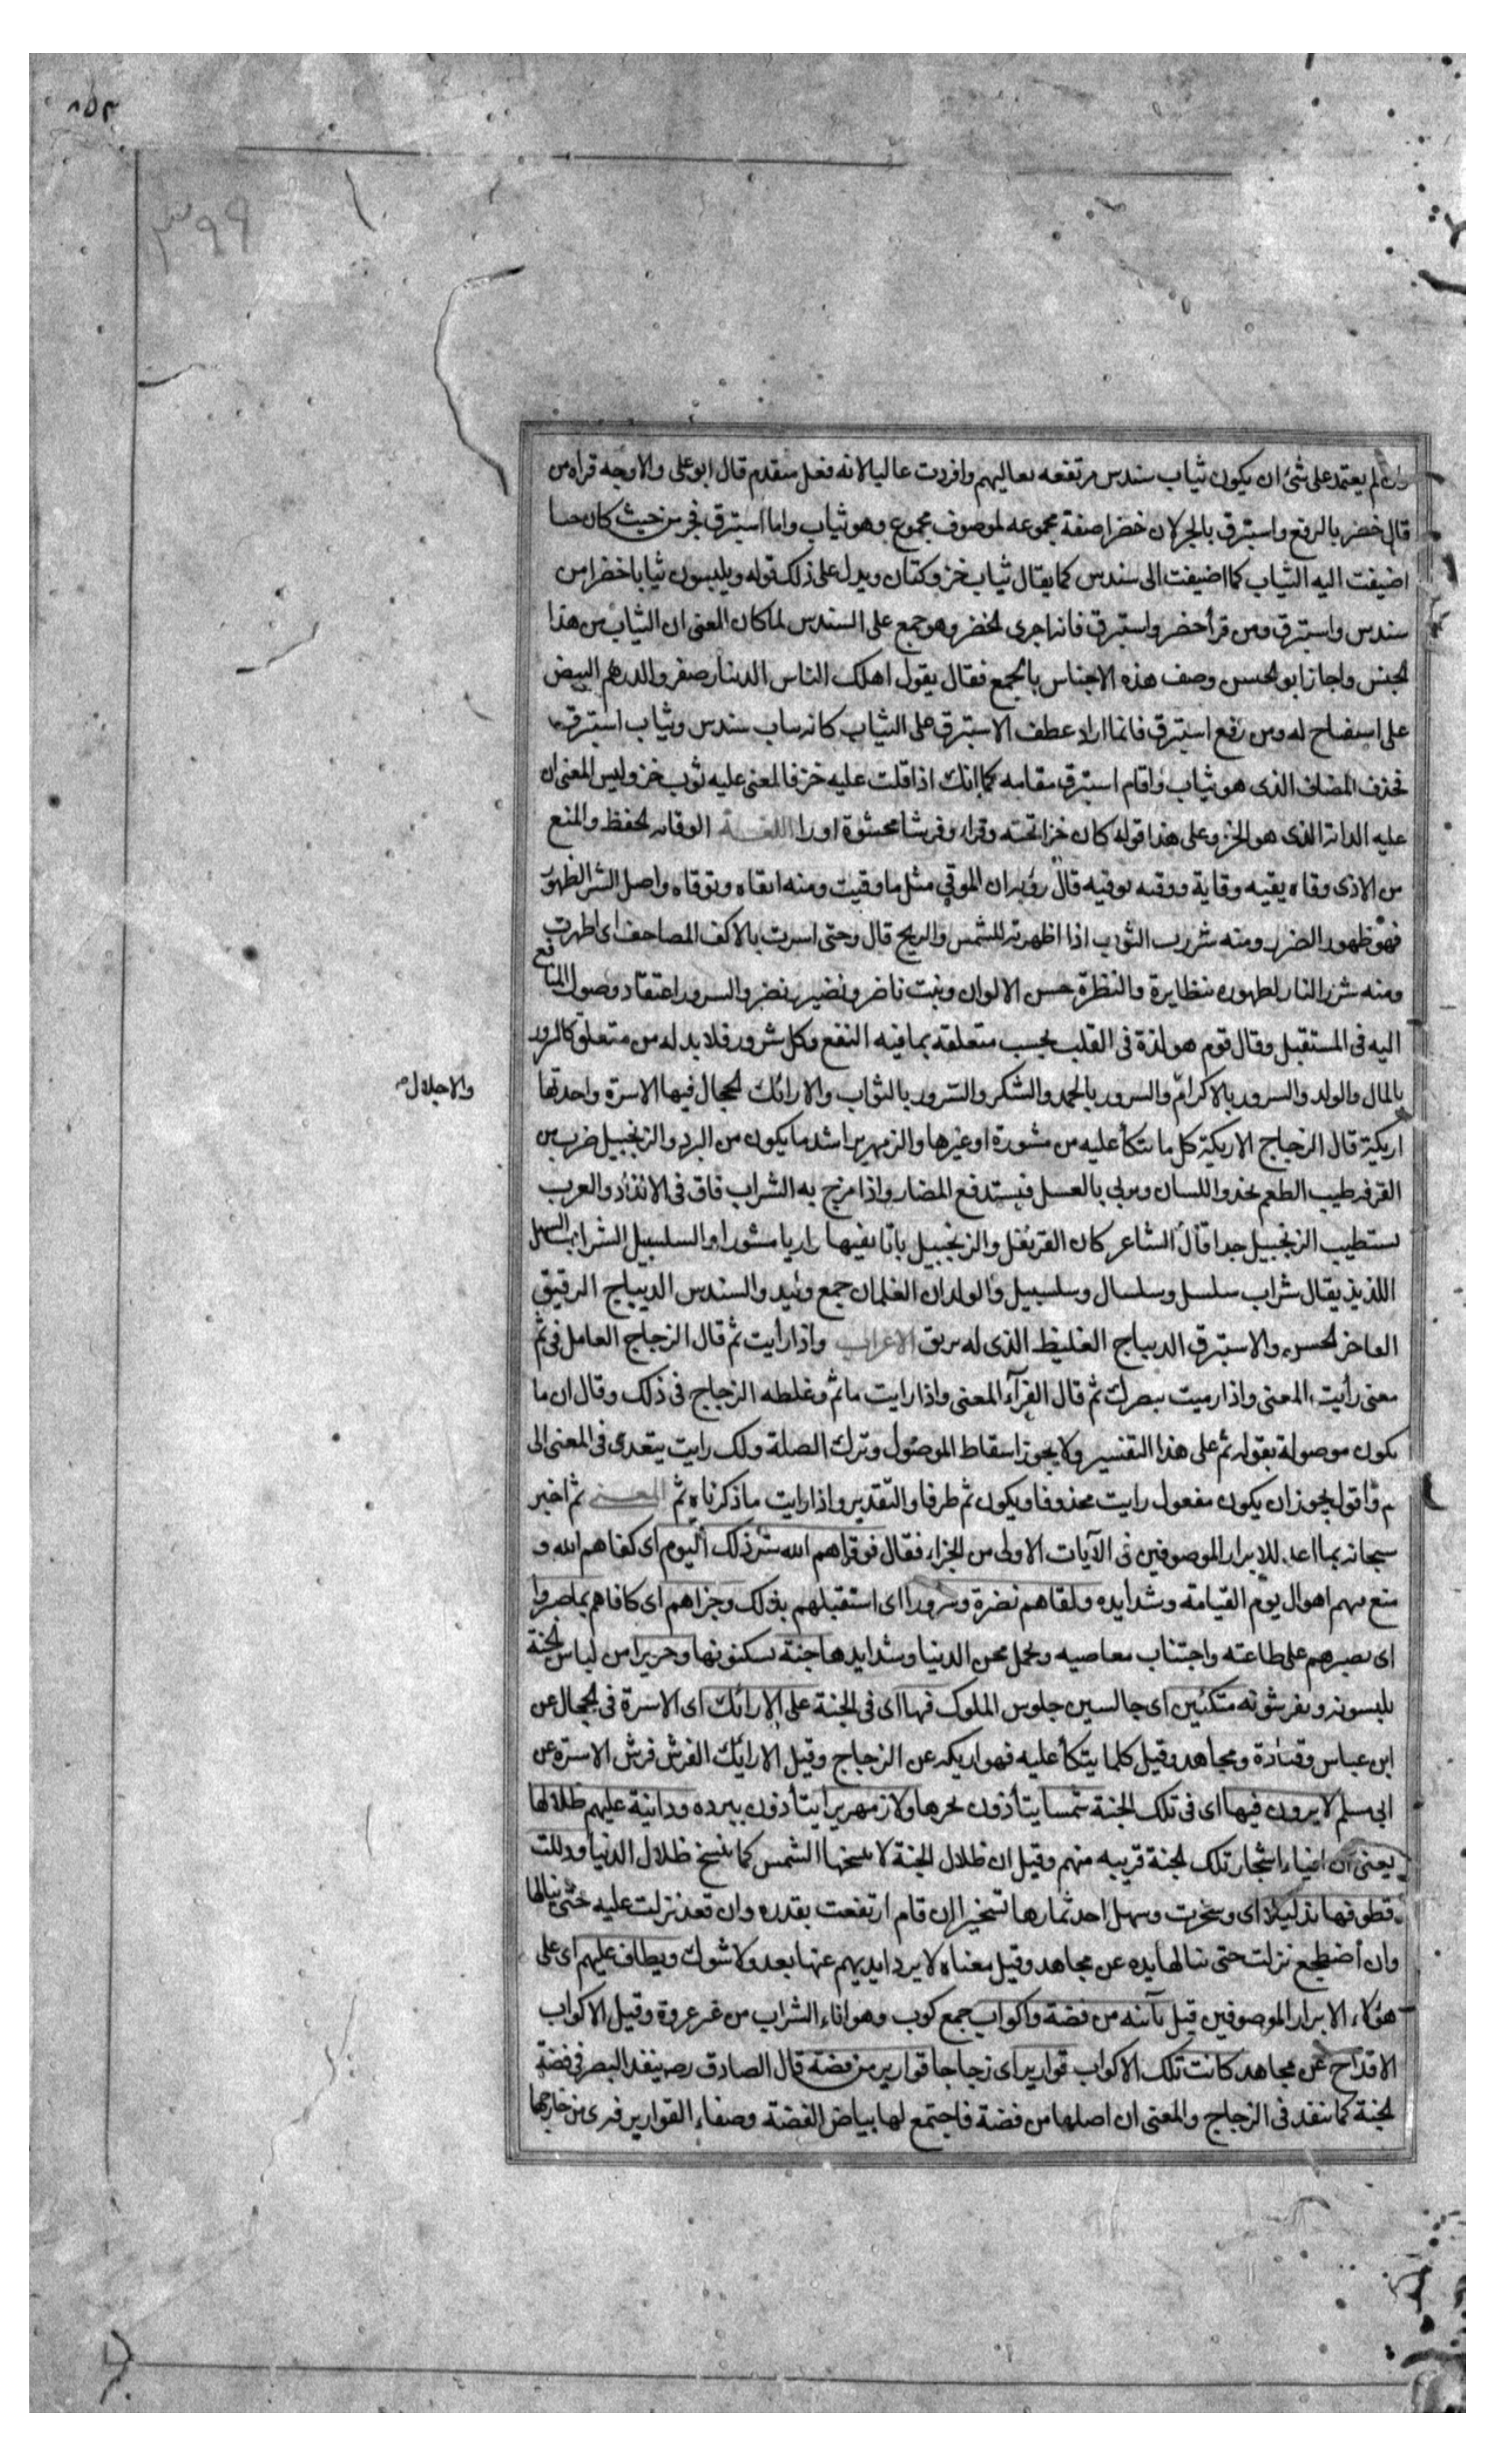 ٨٥٣
٣٩٩
وان لم يعتمد على شئ ان يكون ثياب سندس مرتفعه بعاليهم وافردت عاليا لانه فعل متقدم قال ابو على والاوجه قراه من
قال خضر بالرفع واستبرق بالجر لان خضرا صفة مجموعه لموصوف مجموع وهو ثياب واما استبرق فجر من حيث كان جنسا
اضيفت اليه الثياب كما اضيفت الى سندس كما يقال ثياب خز وكتان ويدل على ذلك قوله ويلبسون ثيابا خضرا من
سندس واستبرق ومن قرأ خضر واستبرق فانه اجرى الخضر وهو جمع على السندس لما كان المعنى ان الثياب من هذا
الجنس واجاز ابو الحسن وصف هذه الاجناس بالجمع فقال يقول اهلك الناس الدينار الصفر والدرهم البيض
على استقباح له ومن رفع استبرق فانما اراد عطف الاستبرق على الثياب كانه ثياب سندس وثياب استبرق
فحذف المضاف الذى هو ثياب واقام استبرق مقامه كما انك اذا قلت عليه خز فالمعنى عليه ثوب خز وليس المعنى ان
عليه الدابة الذى هو الخز وعلى هذا قوله كان خزا تحته وقزا وفرشا محشوة اوزا اللغة الوقاية الحفظ والمنع
من الاذى وقاه يقيه وقاية ووقيه يوقيه قال رؤبة ان الموقى مثل ما وقيت ومنه اتقاه وتوقاه واصل الشر الظهور
فهو ظهور الضر ومنه شررت الثوب اذا اظهرته للشمس والريح قال وحتى اسرت بالاكف المصاحف اى اظهرت
ومنه شرر النار لظهوره بتطايره والنظرة حسن الالوان ونبت ناضر ونضير ونضر والسرور اعتقاد وصول المنافع
اليه فى المستقبل وقال قوم هو لذة فى القلب بحسب متعلقه بما فيه النفع وكل سرور فلا بد له من متعلق كالسرور
بالمال والولد والسرور بالاكرام والسرور بالحمد والشكر والسرور بالثواب والارائك الحجال فيها الاسرة واحدتها
والاجلال صح
اريكة قال الزجاج الاريكة كل ما يتكأ عليه من مسورة او غيرها والزمهرير اشد ما يكون من البرد والزنجبيل ضرب من
القرفه طيب الطعم يحذو اللسان ويربى بالعسل فيستدفع المضار واذا مزج به الشراب فاق فى الالذاذ والعرب
تستطيب الزنجبيل جدا قال الشاعر كان القرنفل والزنجبيل باتا بفيها واريا مشورا والسلسبيل الشراب السهل
اللذيذ يقال شراب سلسل وسلسال وسلسبيل والولدان الغلمان جمع وليد والسندس الديباج الرقيق
الفاخر الحسن والاستبرق الديباج الغليظ الذى له بريق الاعراب واذا رايت ثم قال الزجاج العامل فى ثم
معنى رأيت المعنى واذا رميت ببصرك ثم قال الفرآء المعنى واذا رايت ما ثم وغلطه الزجاج فى ذلك وقال ان ما
تكون موصولة بقوله ثم على هذا التفسير ولا يجوز اسقاط الموصول وترك الصلة ولكن رايت يتعدى فى المعنى الى
ثم واقول يجوز ان يكون مفعول رايت محذوفا ويكون ثم ظرفا والتقدير واذا رايت ما ذكرناه ثم المعنى ثم اخبر
سبحانه بما اعد للابرار الموصوفين فى الآيات الاولى من الجزاء فقال فوقاهم الله شر ذلك اليوم اى كفاهم الله و
منع منهم اهوال يوم القيامة وشدايده ولقاهم نضرة وسرورا اى استقبلهم بذلك وجزاهم اى كافاهم بما صبروا
اى بصبرهم على طاعته واجتناب معاصيه وتحمل محن الدنيا وشدايدها جنة يسكنونها وحريرا من لباس الجنة
يلبسونه ويفرشونه متكئين اى جالسين جلوس الملوك فيها اى فى الجنة على الارائك اى الاسرة فى الحجال عن
ابن عباس وقتادة ومجاهد وقيل كلما يتكأ عليه فهو اريكه عن الزجاج وقيل الارايك الفرش فرش الاسترة عن
ابى مسلم لا يرون فيها اى فى تلك الجنة شمسا يتأذون بحرها ولا زمهريرا يتأذون ببرده ودانية عليهم ظلالها
يعنى ان افياء اشجار تلك الجنة قريبه منهم وقيل ان ظلال الجنة لا تنسخها الشمس كما تنسخ ظلال الدنيا وذللت
قطوفها تذليلا اى وسخرت وسهل اخذ ثمارها تسخيرا ان قام ارتفعت بقدره وان قعد نزلت عليه حتى ينالها
وان أضطجع نزلت حتى تنالها يده عن مجاهد وقيل معناه لا يرد ايديهم عنها بعد ولا شوك ويطاف عليهم اى على
هؤلاء الابرار الموصوفين قبل بآنيه من فضة واكواب جمع كوب وهو اناء الشراب من غير عروة وقيل الاكواب
الاقداح عن مجاهد كانت تلك الاكواب قوارير اى زجاجا قوارير من فضة قال الصادق ينفذ البصر فى فضة
الجنة كما ينفذ فى الزجاج والمعنى ان اصلها من فضة فاجتمع لها بياض الفضة وصفاء القوارير فيرى من خارجها